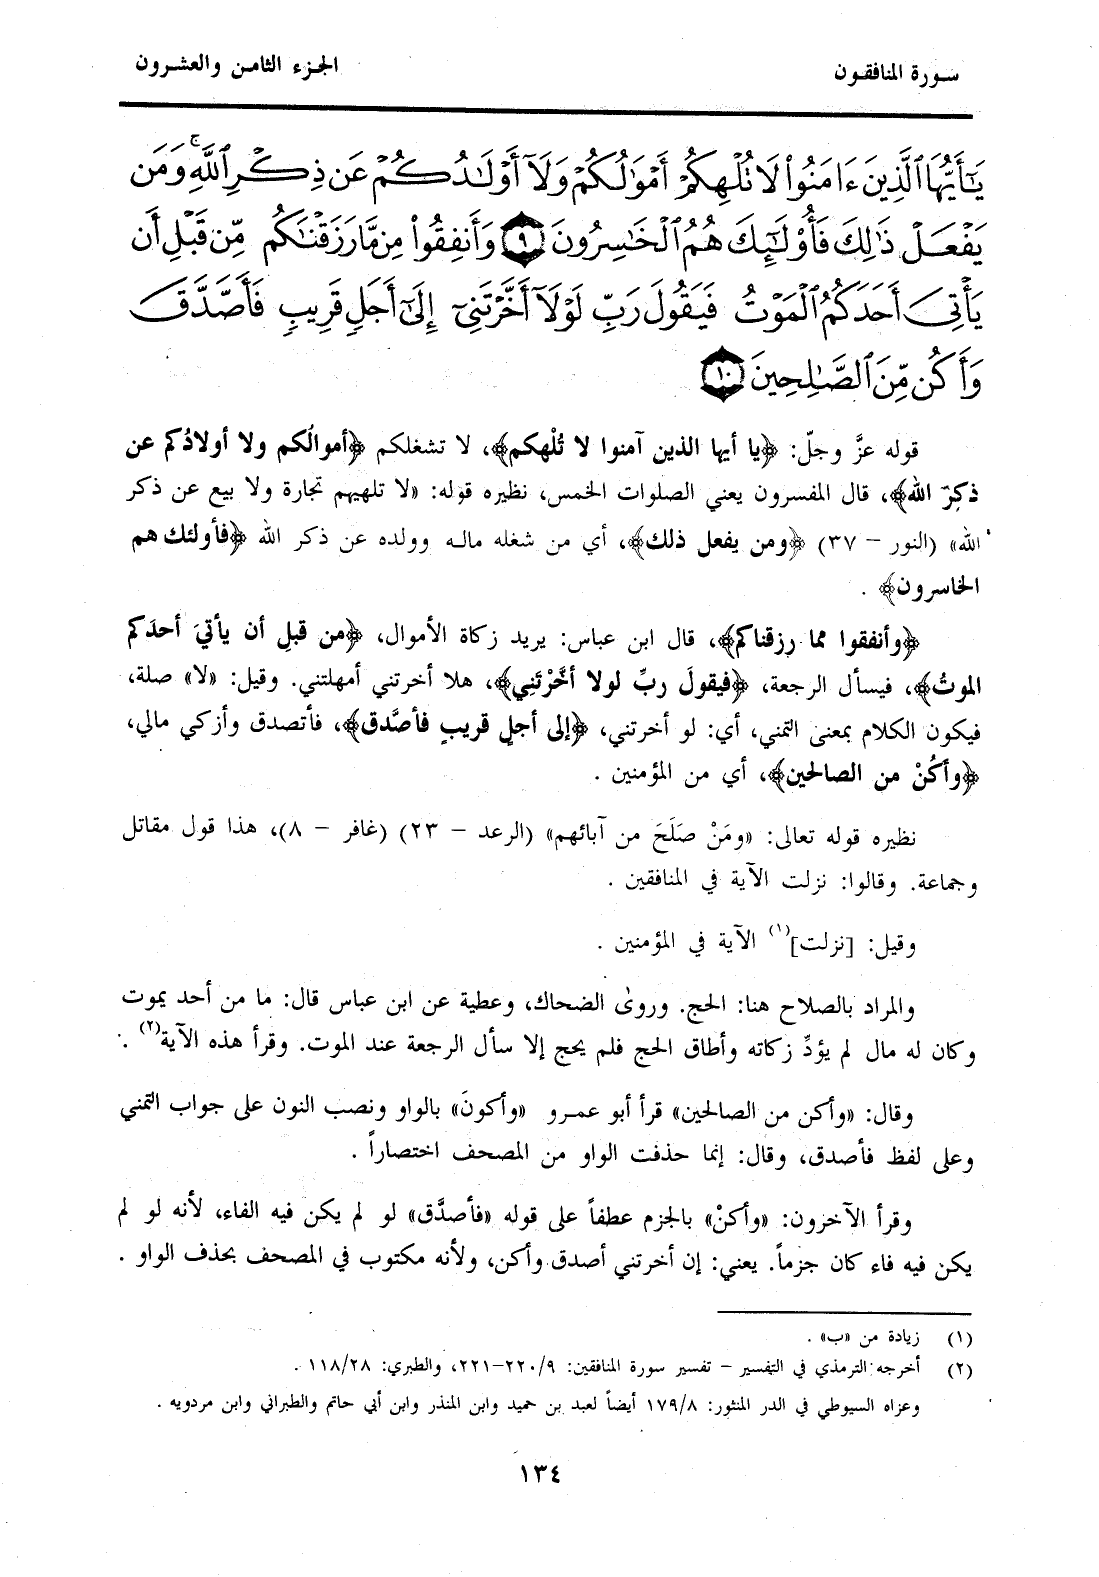 سورة المنافقون
الجزء الثامن والعشرون
يَٰٓأَيُّهَا ٱلَّذِينَ ءَامَنُوا۟ لَا تُلْهِكُمْ أَمْوَٰلُكُمْ وَلَآ أَوْلَٰدُكُمْ عَن ذِكْرِ ٱللَّهِ ۚ وَمَن
يَفْعَلْ ذَٰلِكَ فَأُو۟لَٰٓئِكَ هُمُ ٱلْخَٰسِرُونَ ٩ وَأَنفِقُوا۟ مِن مَّا رَزَقْنَٰكُم مِّن قَبْلِ أَن
يَأْتِىَ أَحَدَكُمُ ٱلْمَوْتُ فَيَقُولَ رَبِّ لَوْلَآ أَخَّرْتَنِىٓ إِلَىٰٓ أَجَلٍ قَرِيبٍ فَأَصَّدَّقَ
وَأَكُن مِّنَ ٱلصَّٰلِحِينَ ١٠
قوله عزَّ وجلّ: ﴿يا أيها الذين آمنوا لا تُلْهكم﴾، لا تشغلكم ﴿أموالُكم ولا أولادُكم عن
ذكِرِ الله﴾، قال المفسرون يعني الصلوات الخمس، نظيره قوله: «لا تلهيهم تجارة ولا بيع عن ذكر
الله» (النور – ٣٧) ﴿ومن يفعل ذلك﴾، أي من شغله ماله وولده عن ذكر الله ﴿فأولئك هم
الخاسرون﴾ .
﴿وأنفقوا مما رزقناكم﴾، قال ابن عباس: يريد زكاة الأموال، ﴿من قبلِ أن يأتيَ أحدَكم
الموتُ﴾، فيسأل الرجعة، ﴿فيقولَ ربِّ لولا أخَّرْتَني﴾، هلا أخرتني أمهلتني. وقيل: «لا» صلة،
فيكون الكلام بمعنى التمني، أي: لو أخرتني، ﴿إلى أجلٍ قريبٍ فأصَّدق﴾، فأتصدق وأزكي مالي،
﴿وأكُنْ من الصالحين﴾، أي من المؤمنين .
نظيره قوله تعالى: «ومَنْ صَلَحَ من آبائهم» (الرعد – ٢٣) (غافر – ٨)، هذا قول مقاتل
وجماعة. وقالوا: نزلت الآية في المنافقين .
وقيل: [نزلت](١) الآية في المؤمنين .
والمراد بالصلاح هنا: الحج. وروىٰ الضحاك، وعطية عن ابن عباس قال: ما من أحد يموت
وكان له مال لم يؤدِّ زكاته وأطاق الحج فلم يحج إلا سأل الرجعة عند الموت. وقرأ هذه الآية(٢) .
وقال: «وأكن من الصالحين» قرأ أبو عمرو «وأكونَ» بالواو ونصب النون على جواب التمني
وعلى لفظ فأصدق، وقال: إنما حذفت الواو من المصحف اختصاراً .
وقرأ الآخرون: «وأكنْ» بالجزم عطفاً على قوله «فأصدَّق» لو لم يكن فيه الفاء، لأنه لو لم
يكن فيه فاء كان جزماً. يعني: إن أخرتني أصدق وأكن، ولأنه مكتوب في المصحف بحذف الواو .
(١) زيادة من «ب» .
(٢) أخرجه الترمذي في التفسير – تفسير سورة المنافقين: ٩/‏٢٢٠–٢٢١، والطبري: ٢٨/‏١١٨ .
وعزاه السيوطي في الدر المنثور: ٨/‏١٧٩ أيضاً لعبد بن حميد وابن المنذر وابن أبي حاتم والطبراني وابن مردويه .
١٣٤